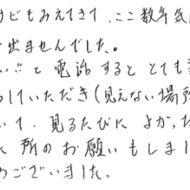 けどもみえてきて、ここ数年気
出ませんでした。
い!!と電話するととても
していただき(見えない場所
いて、見るたびによかった
所のお願いもしまし
うございました。